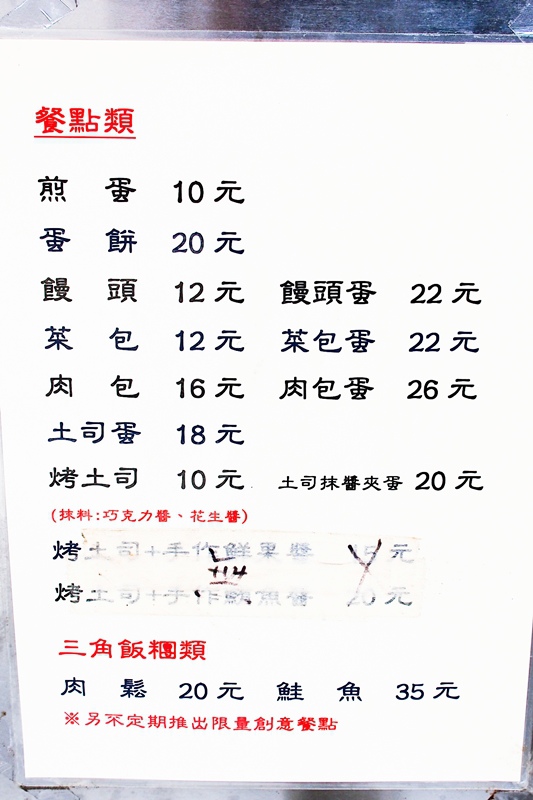 餐點類
煎 蛋 10元
蛋 餅 20元
饅 頭 12元 饅頭蛋 22元
菜 包 12元 菜包蛋 22元
肉 包 16元 肉包蛋 26元
土司蛋 18元
烤土司 10元 土司抹醬夾蛋 20元
(抹料:巧克力醬、花生醬)
烤土司+手作鮮果醬 元
烤土司+手作鮪魚醬 20元
三角飯糰類
肉 鬆 20元 鮭 魚 35元
※另不定期推出限量創意餐點